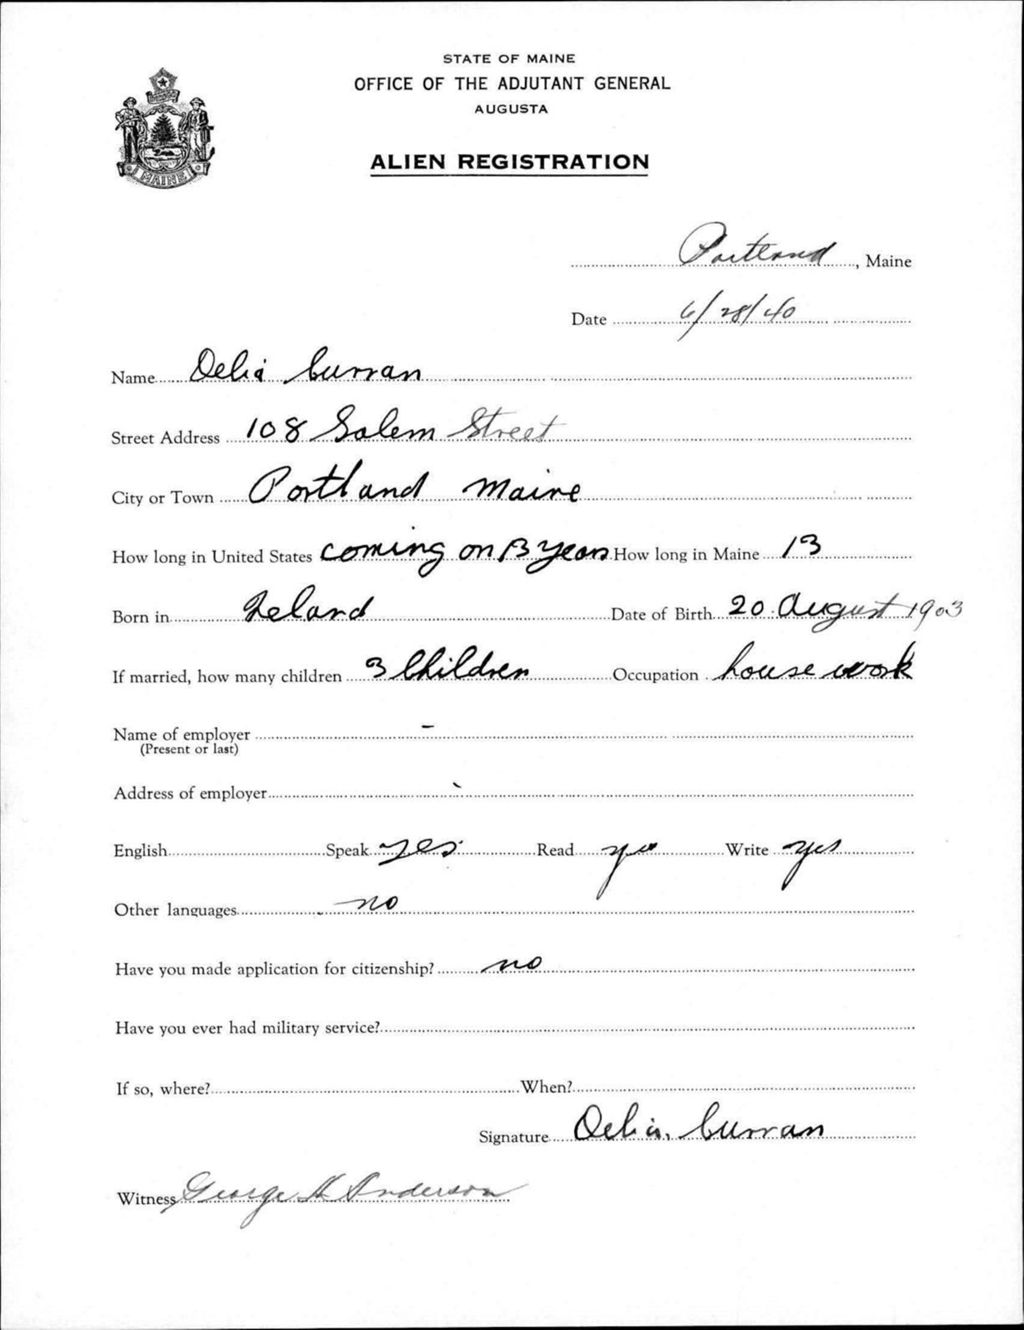 STATE OF MAINE
OFFICE OF THE ADJUTANT GENERAL
AUGUSTA
ALIEN REGISTRATION
MAINE
Portland, Maine
Date 6/28/40
Name Delia Curran
Street Address 108 Salem Street
City or Town Portland Maine
How long in United States coming on 13 years How long in Maine 13
Born in Ireland Date of Birth 20 August 1903
If married, how many children 3 Children Occupation house work
Name of employer -
(Present or last)
Address of employer
English Speak yes Read yes Write yes
Other languages no
Have you made application for citizenship? no
Have you ever had military service?
If so, where? When?
Signature Delia Curran
Witness George H Anderson